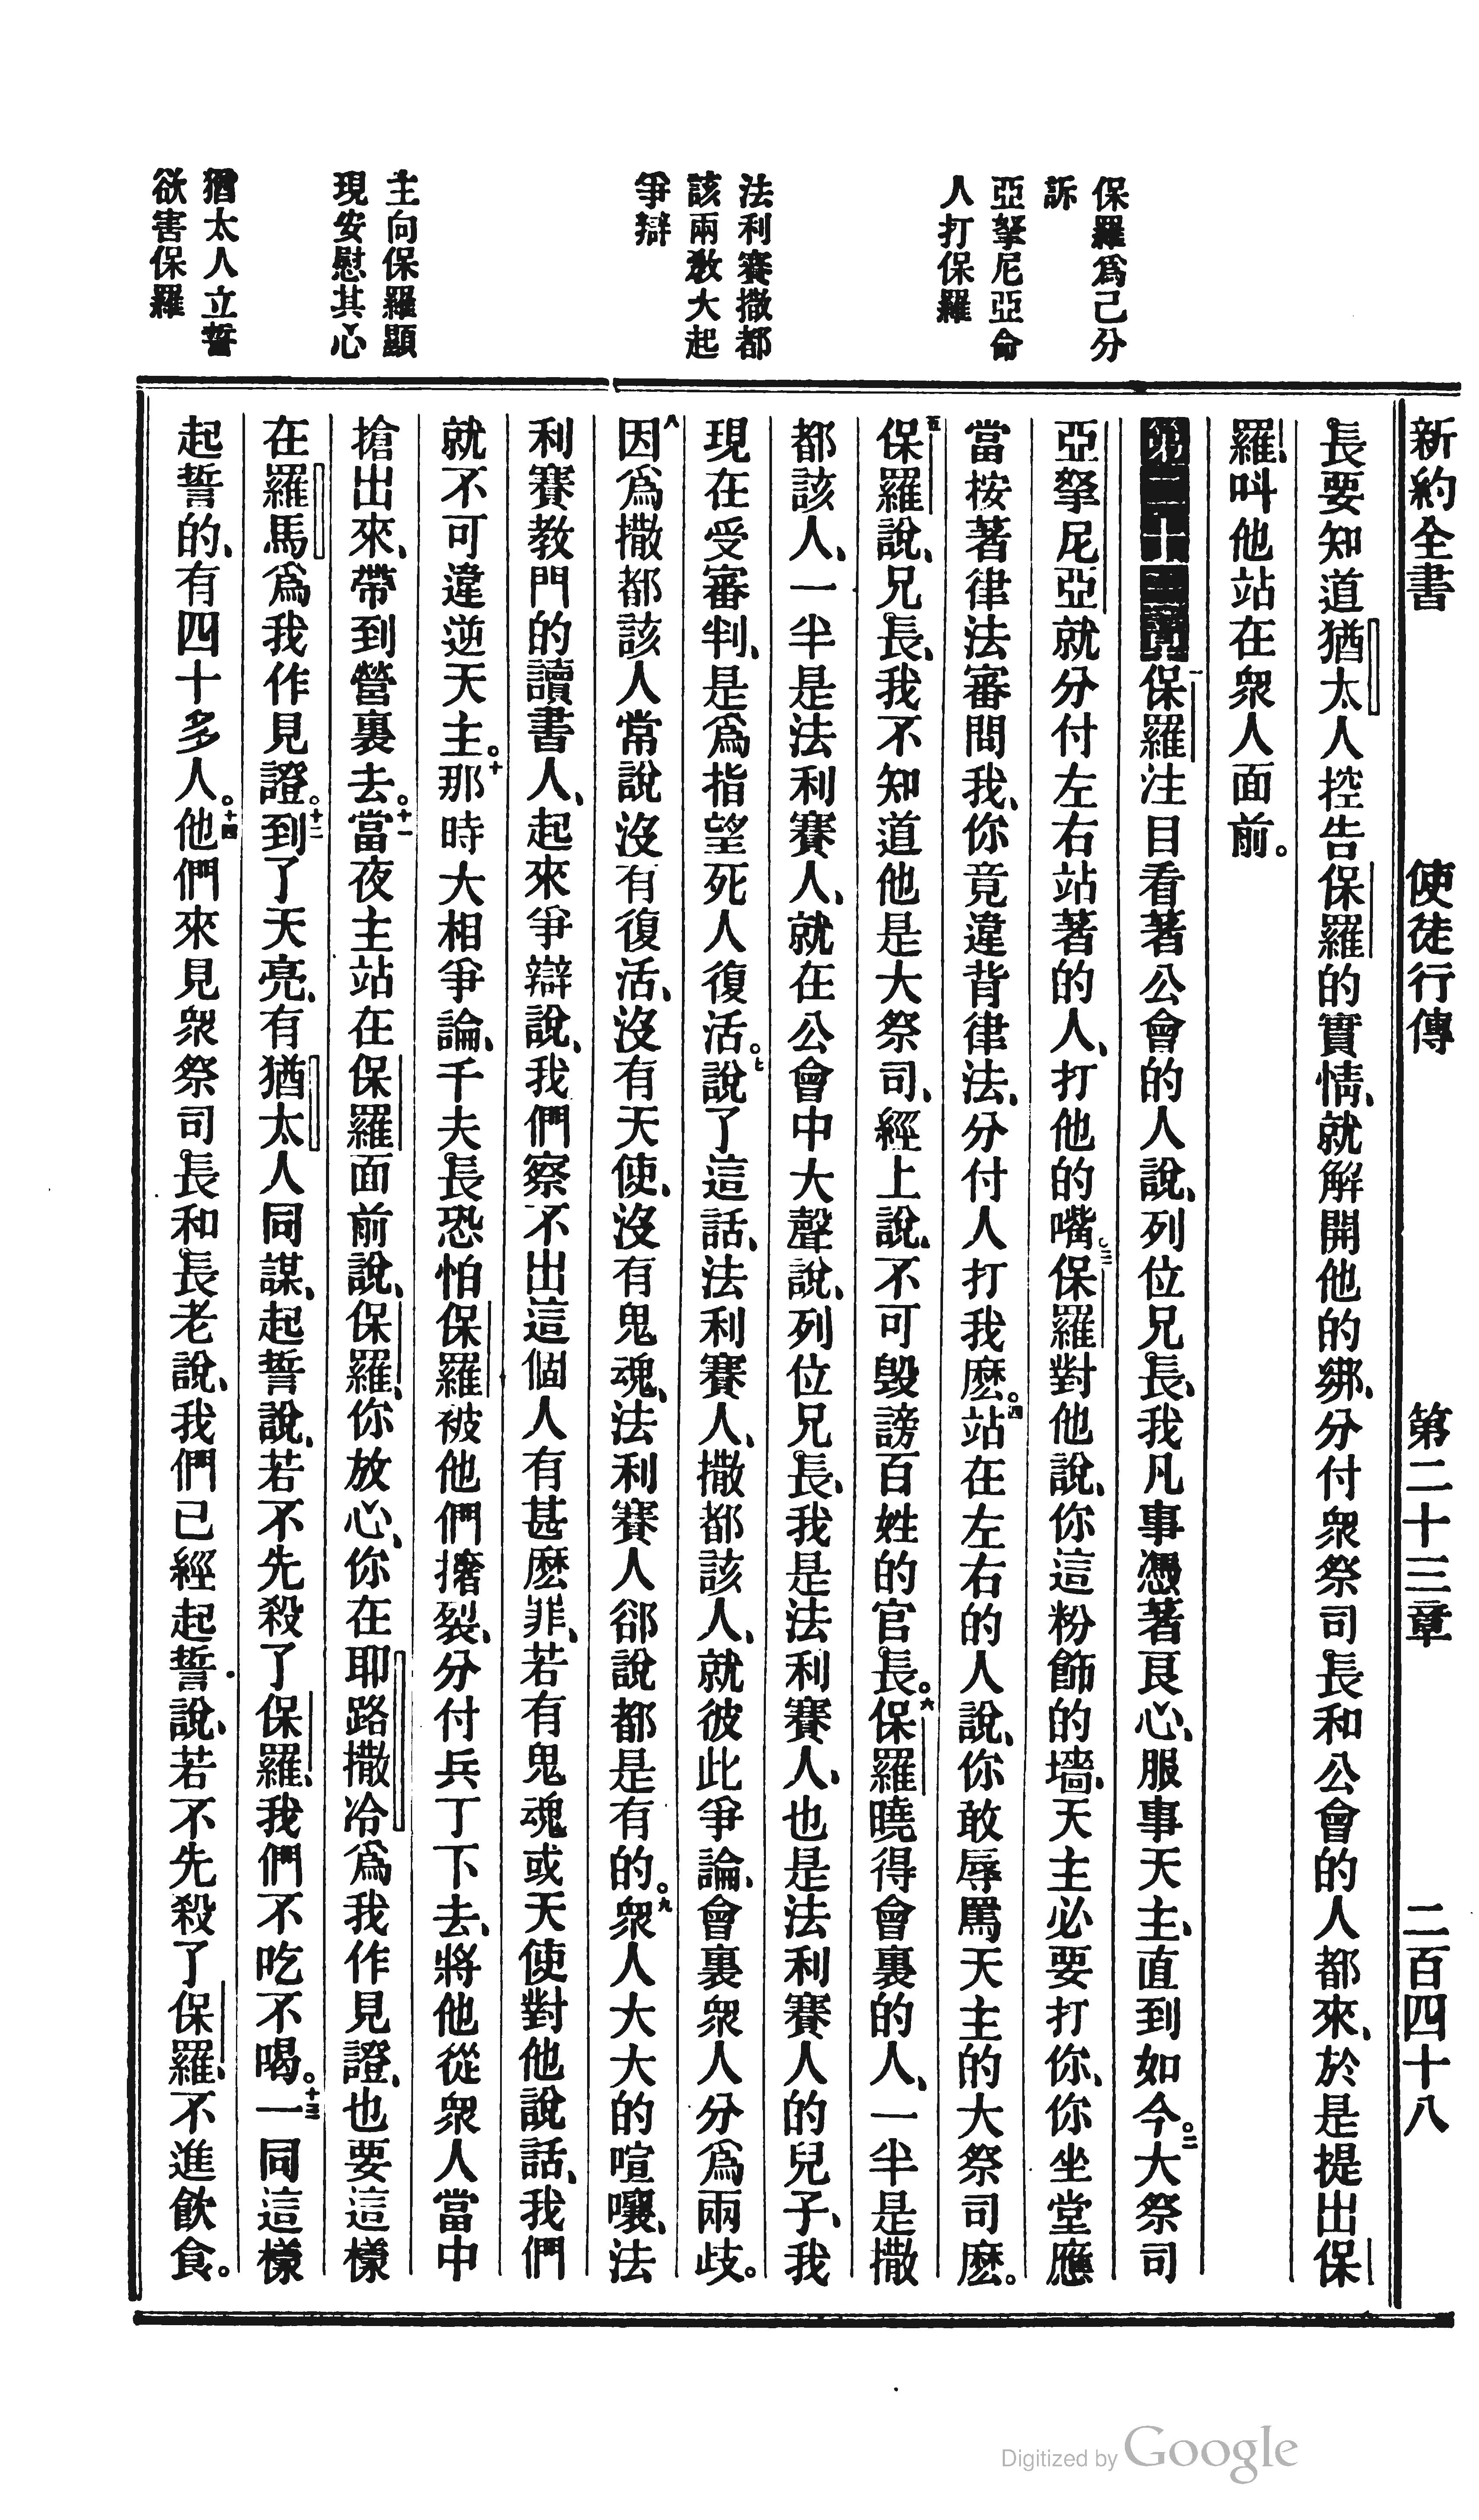 新約全書 使徒行傳 第二十三章 二百四十八
保羅爲己分
訴
亞拏尼亞命
人打保羅
法利賽撒都
該兩教大起
爭辯
主向保羅顯
現安慰其心
猶太人立誓
欲害保羅
長要知道猶太人控告保羅的實情、就解開他的綁、分付衆祭司長和公會的人都來、於是提出保
羅、叫他站在衆人面前。
第二十三章一保羅注目看著公會的人說、列位兄長、我凡事憑著良心、服事天主、直到如今。二大祭司
亞拏尼亞就分付左右站著的人、打他的嘴。三保羅對他說、你這粉飾的墻、天主必要打你、你坐堂應
當按著律法審問我、你竟違背律法、分付人打我麽。四站在左右的人說、你敢辱罵天主的大祭司麽。
五保羅說、兄長、我不知道他是大祭司、經上說、不可毀謗百姓的官長。六保羅曉得會裏的人、一半是撒
都該人、一半是法利賽人、就在公會中大聲說、列位兄長、我是法利賽人、也是法利賽人的兒子、我
現在受審判、是爲指望死人復活。七說了這話、法利賽人、撒都該人、就彼此爭論、會裏衆人分爲兩歧。
八因爲撒都該人常說沒有復活、沒有天使、沒有鬼魂、法利賽人卻說都是有的。九衆人大大的喧嚷、法
利賽教門的讀書人、起來爭辯說、我們察不出這個人有甚麽罪、若有鬼魂或天使對他說話、我們
就不可違逆天主。十那時大相爭論、千夫長恐怕保羅被他們撦裂、分付兵丁下去、將他從衆人當中
搶出來、帶到營裏去。十一當夜主站在保羅面前說、保羅、你放心、你在耶路撒冷爲我作見證、也要這樣
在羅馬爲我作見證。十二到了天亮、有猶太人同謀、起誓說、若不先殺了保羅、我們不吃不喝。十三一同這樣
起誓的、有四十多人。十四他們來見衆祭司長和長老說、我們已經起誓說、若不先殺了保羅、不進飲食。
Digitized by Google